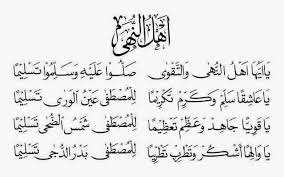 أَهْلُ النُّهَى
يَا أَيُّهَا أَهْلُ النُّهَى وَالتَّقْوَى صَلُّوا عَلَيْهِ وَسَلِّمُوا تَسْلِيمًا
يَا عَاشِقًا سَلِّمْ وَكَرِّمْ تَكْرِيمًا لِلْمُصْطَفَى عَيْنِ الْوَرَى تَسْلِيمًا
يَا قَوِيًّا جَاهِدْ وَعَظِّمْ تَعْظِيمًا لِلْمُصْطَفَى شَمْسِ الضُّحَى تَسْلِيمًا
يَا وَالِهًا أَشْكُرْ وَتَطْرِبْ تَطْرِيبًا لِلْمُصْطَفَى بَدْرِ الدُّجَى تَسْلِيمًا